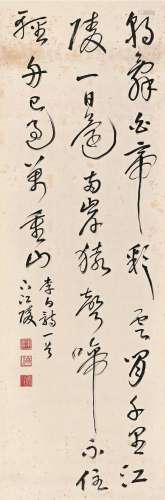 朝辭白帝彩雲間千里江
陵一日還兩岸猿聲啼不住
輕舟已過萬重山
李白詩一首
下江陵